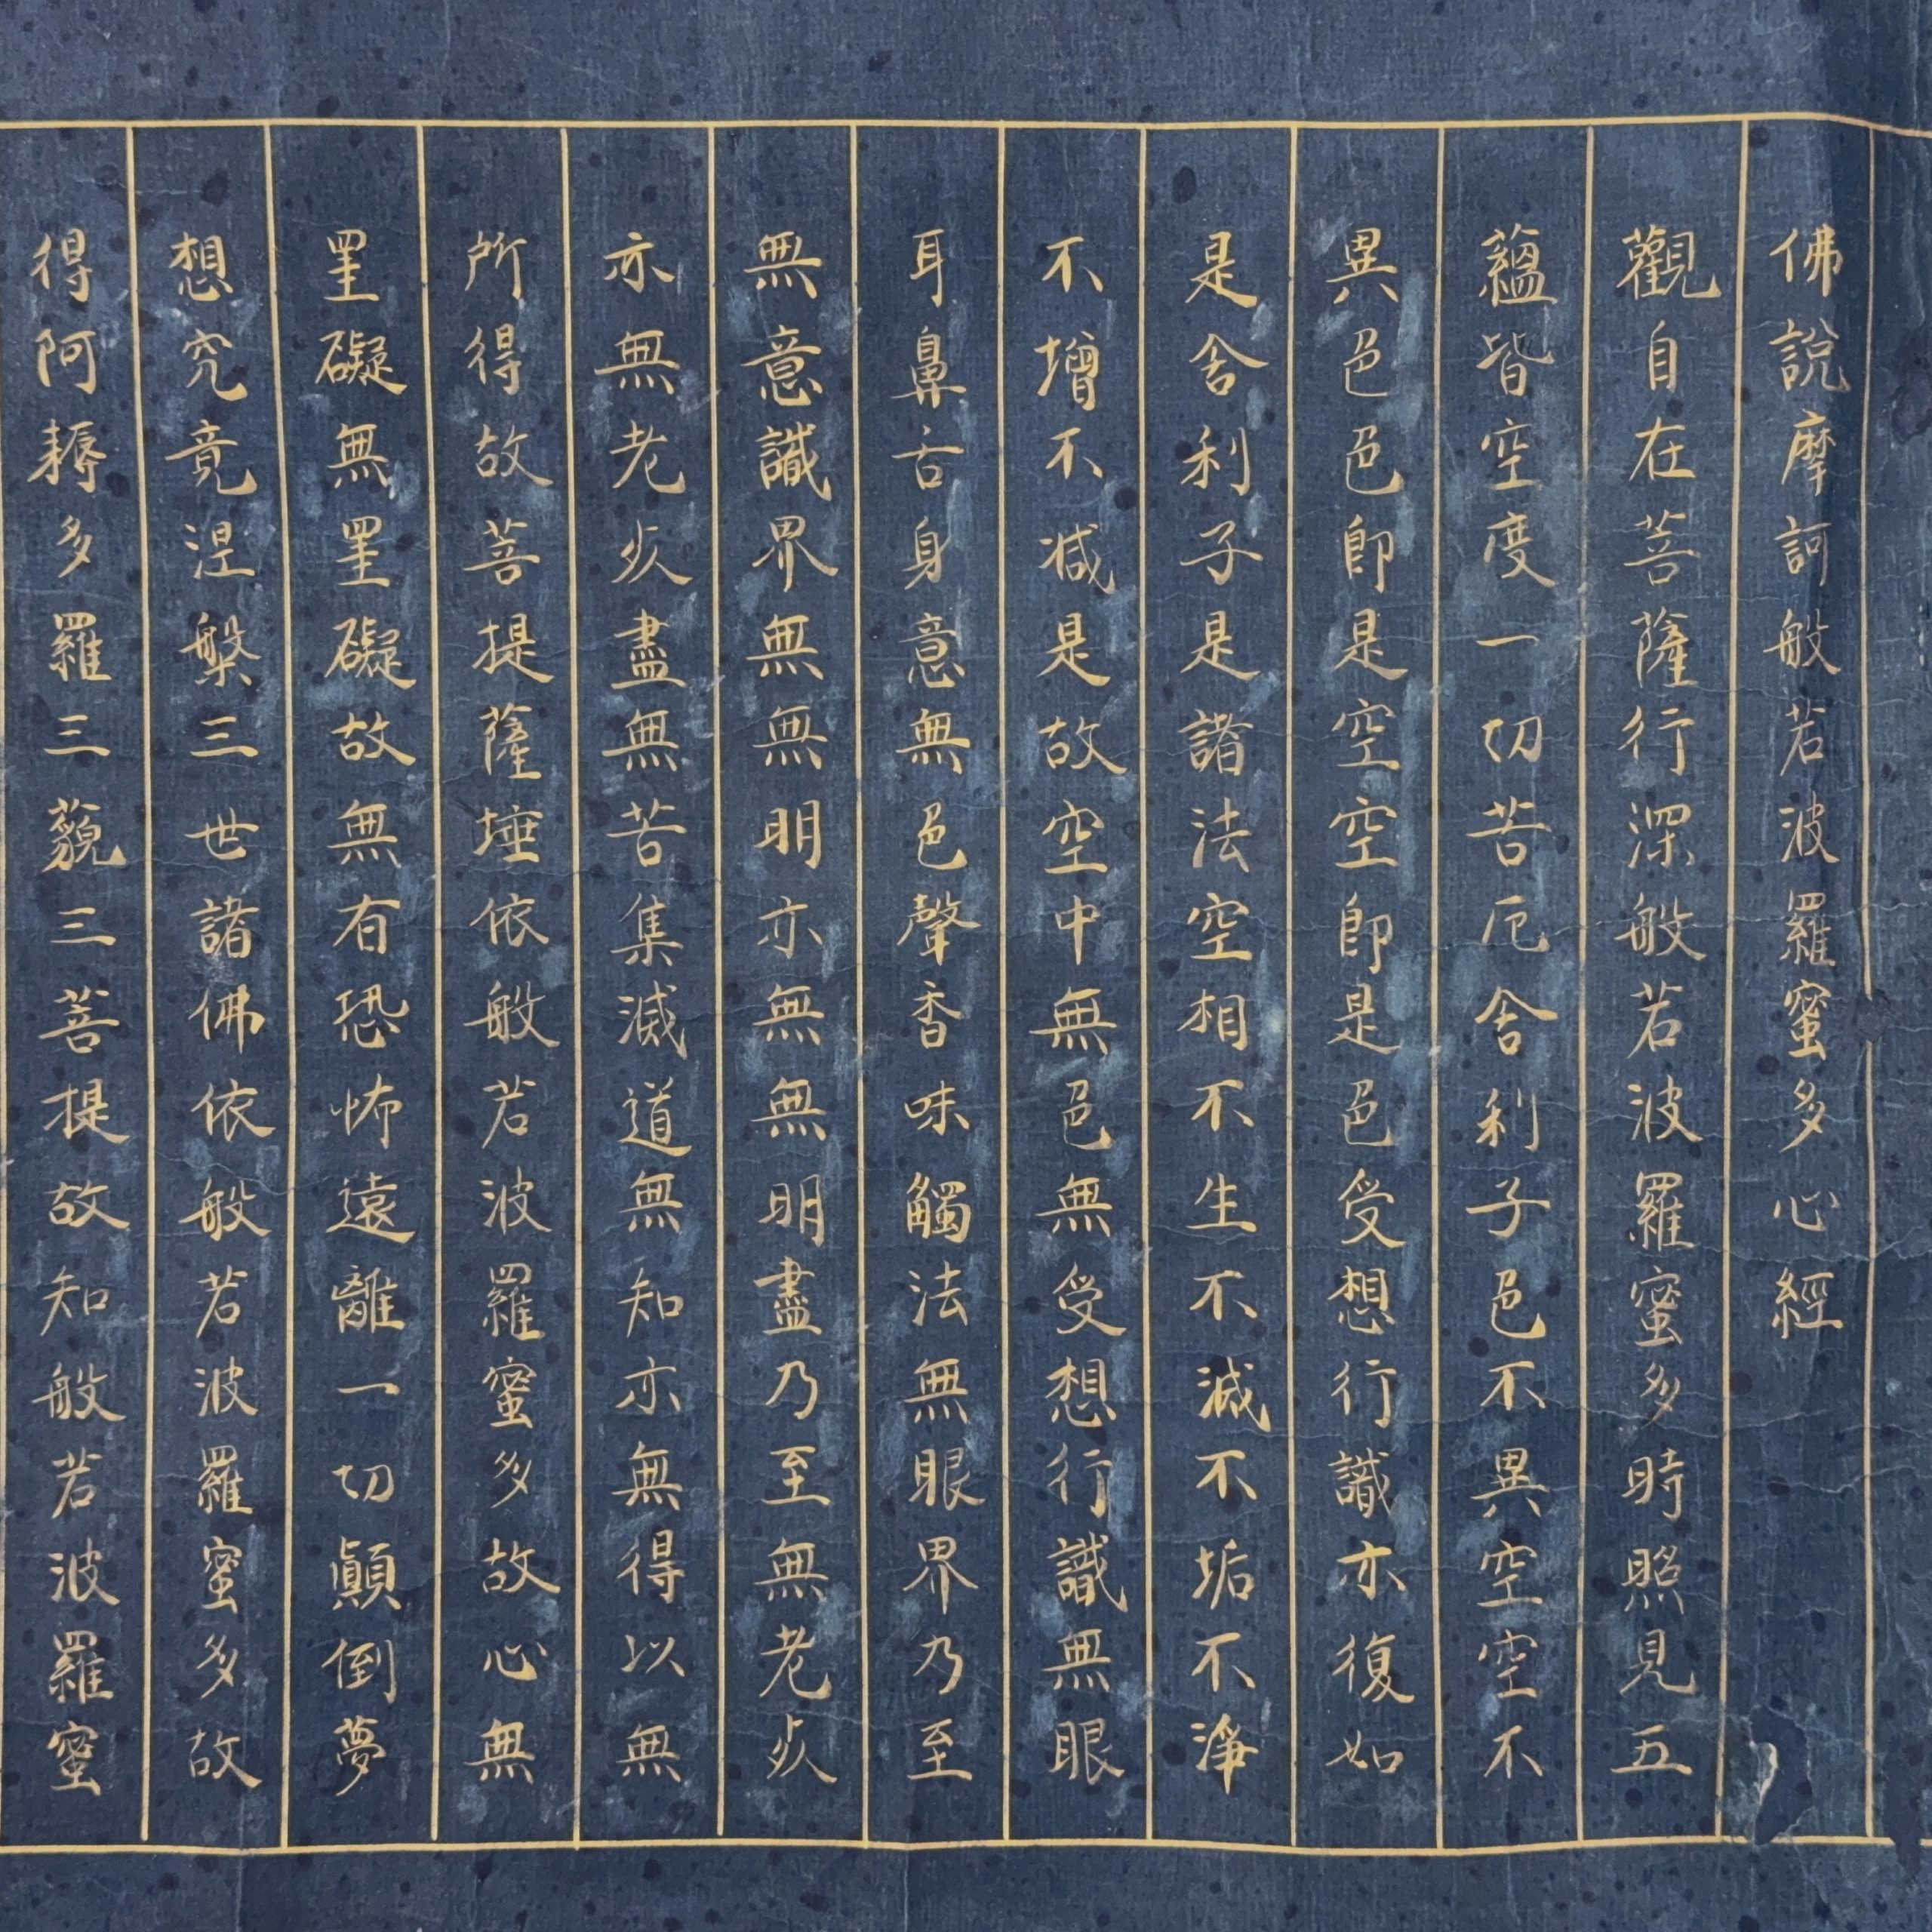 佛說摩訶般若波羅蜜多心經
觀自在菩薩行深般若波羅蜜多時照見五
蘊皆空度一切苦厄舍利子色不異空空不
異色色即是空空即是色受想行識亦復如
是舍利子是諸法空相不生不滅不垢不淨
不增不減是故空中無色無受想行識無眼
耳鼻舌身意無色聲香味觸法無眼界乃至
無意識界無無明亦無無明盡乃至無老死
亦無老死盡無苦集滅道無知亦無得以無
所得故菩提薩埵依般若波羅蜜多故心無
罣礙無罣礙故無有恐怖遠離一切顛倒夢
想究竟涅槃三世諸佛依般若波羅蜜多故
得阿耨多羅三藐三菩提故知般若波羅蜜